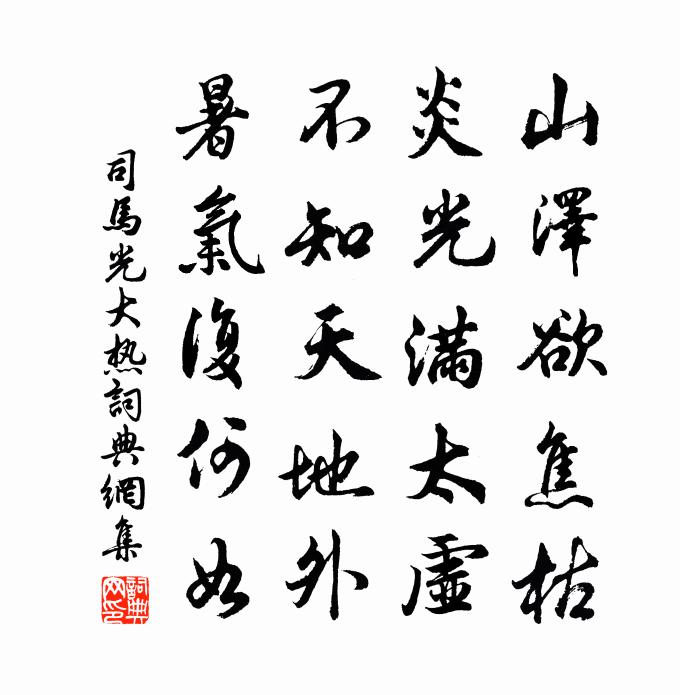 山澤欲焦枯
炎光滿太虛
不知天地外
暑氣復何如
司馬光大热詞典網集
詞典网印